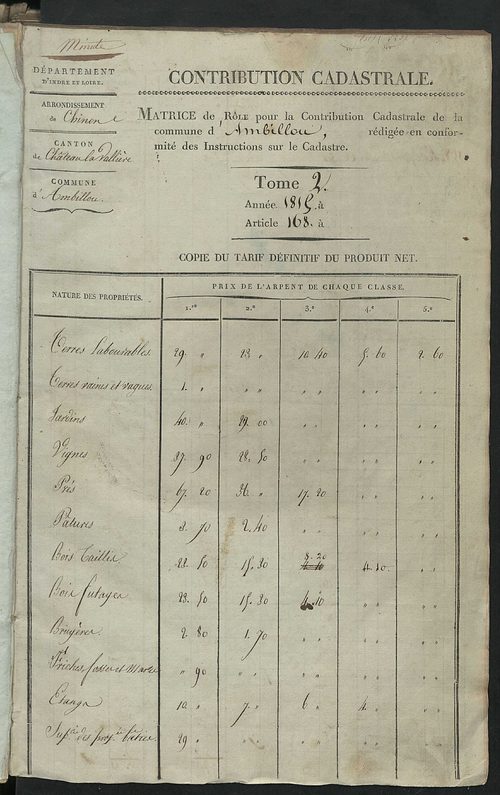 Minute
DÉPARTEMENT
D'INDRE ET LOIRE.
ARRONDISSEMENT
de Chinon
CANTON
de Château la Vallière
COMMUNE
d'Ambillou.
CONTRIBUTION CADASTRALE.
MATRICE de RÔLE pour la Contribution Cadastrale de la
commune d'Ambillou, rédigée en confor-
mité des Instructions sur le Cadastre.
Tome 2.
Année 1815. à
Article 168. à
COPIE DU TARIF DÉFINITIF DU PRODUIT NET.
NATURE DES PROPRIÉTÉS. PRIX DE L'ARPENT DE CHAQUE CLASSE.
1.re 2.e 3.e 4.e 5.e
Terres labourables 29. " 23 " 10 40 5. 60 2. 60
Terres vaines et vagues 1. " " " " " " " " "
Jardins 40. " 29. 00 " " " " " "
Vignes 37. 90 22. 50 " " " " " "
Prés 67. 20 36. " 17. 20 " " " "
Pâtures 8. 70 2. 40 " " " " " "
Bois Taillis 22. 50 15. 30 8. 20 4. 10. " "
Bois futayes 23. 50 15. 30 4. 10 " " " "
Bruyères 2. 80 1. 70 " " " " " "
Friches fossés et Mares " 90 " " " " " " " "
Etangs 10 " 7. " 6 " 4. " " "
Sup.cie des prop.és bâties 29 " " " " " " " " "